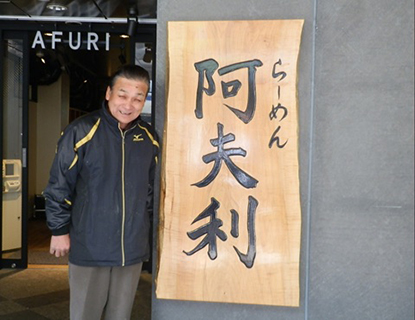 AFURI
らーめん
阿夫利